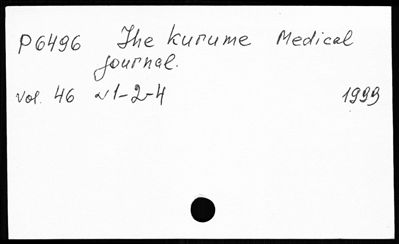 P6496 The Kurume Medical
Journal.
vol. 46 N1-2-4 1999